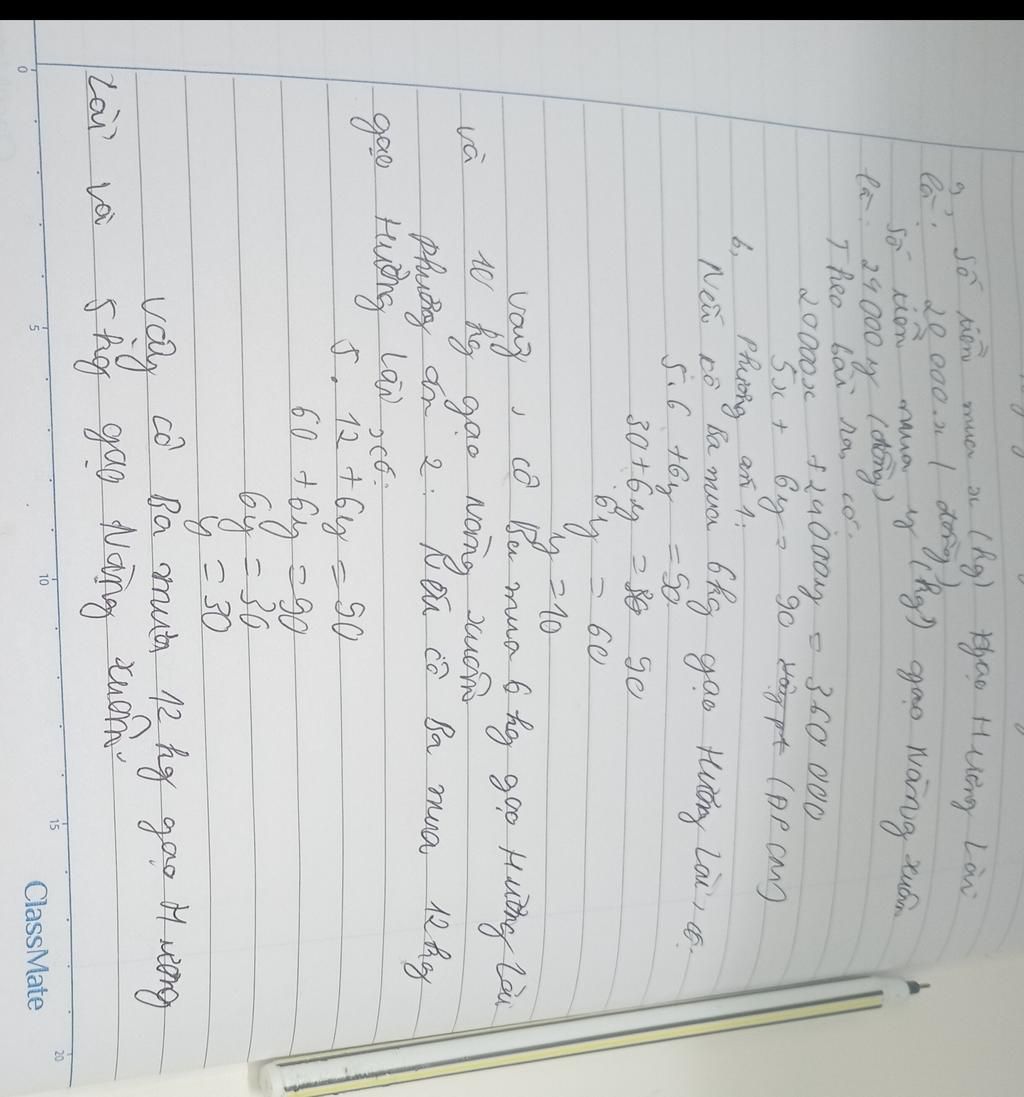 a, Số tiền mua x (kg) gạo Hương Lài
là: 20 000x (đồng)
Số tiền mua y (kg) gạo Nàng xuân
là: 24000y (đồng)
Theo bài ra, có:
20000x + 24000y = 360 000
5x + 6y = 90 (ĐPCM)
b, Phương án 1:
Nếu cô Ba mua 6kg gạo Hương Lài, có:
5.6 + 6y = 90
30 + 6y = 90
6y = 60
y = 10
Vậy, cô Ba mua 6 kg gạo Hương Lài
và 10 kg gạo Nàng xuân
Phương án 2: Nếu cô Ba mua 12 kg
gạo Hương Lài có:
5 . 12 + 6y = 90
60 + 6y = 90
6y = 30
y = 30
Vậy cô Ba mua 12 kg gạo Hương
Lài và 5 kg gạo Nàng xuân
0 5 10 15 20
ClassMate